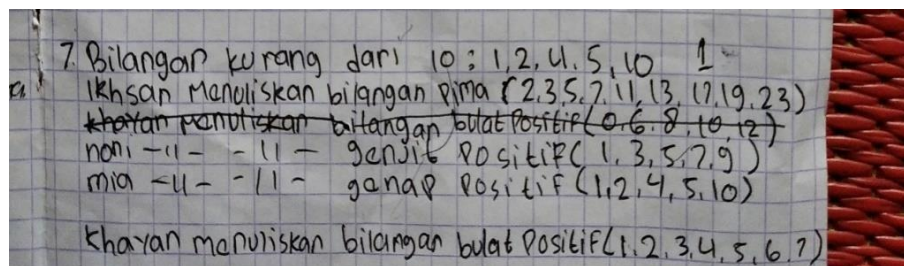 7. Bilangan kurang dari 10 : 1, 2, 4, 5, 10 1
Ikhsan Menuliskan bilangan Pima (2,3,5,7,11,13,17,19,23)
khayan Menuliskan bilangan bulat Positif (0,6,8,10,12)
noni -11- -11- ganjil Positif (1,3,5,7,9)
mia -11- -11- genap Positif (1,2,4,5,10)
Khayan menuliskan bilangan bulat Positif (1,2,3,4,5,6,7)